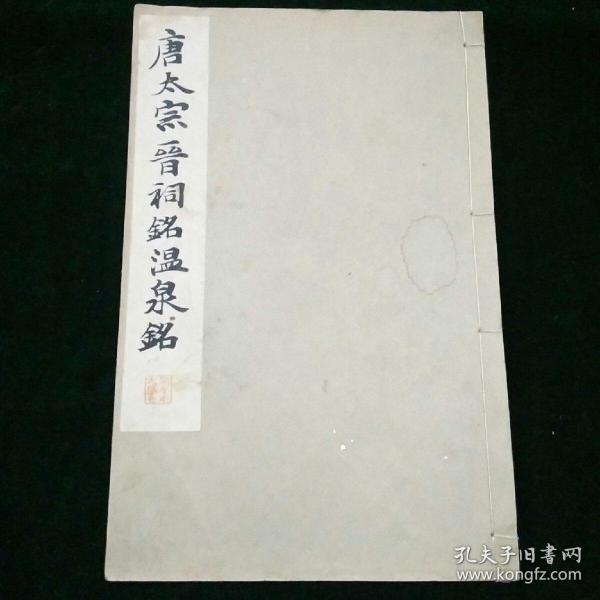 唐太宗晉祠銘温泉銘
孔夫子旧书网
www.kongfz.com